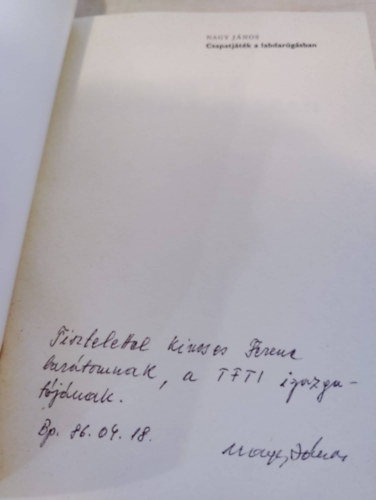 NAGY JÁNOS
Csapatjáték a labdarúgásban
Tisztelettel Kincses Ferenc
barátomnak, a TFTI igazga-
tójának.
Bp. 86.04.18.
Nagy János